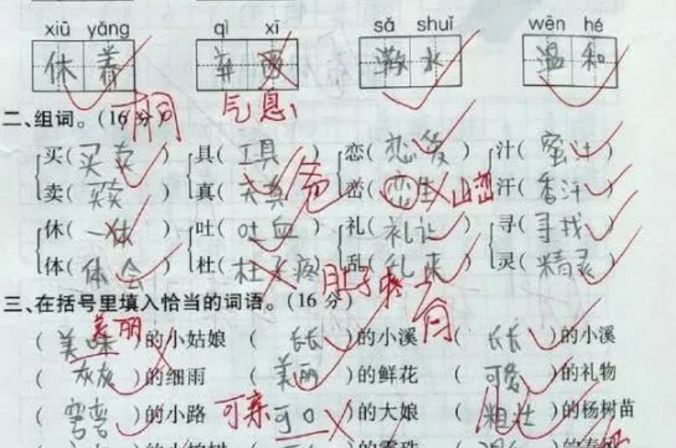 xiū yǎng qì xī sǎ shuǐ wēn hé
休 养 弃 西 潵 水 温 和
气息
二、组词。(16分) 一桐
买(买卖) 具(工具) 恋(恋爱) 汁(蜜汁)
卖(买卖) 真(天真) 峦(恋生) 山峦 汗(香汗)
休(一休) 吐(吐血) 礼(礼让) 寻(寻找)
体(体会) 杜(杜子疼) 乱(乱来) 灵(精灵)
肚子疼
三、在括号里填入恰当的词语。(16分)
美丽
(美味)的小姑娘 (长长)的小溪 (长长)的小溪
(灰灰)的细雨 (美丽)的鲜花 (可爱)的礼物
(弯弯)的小路 可亲 (可口)的大娘 (粗壮)的杨树苗